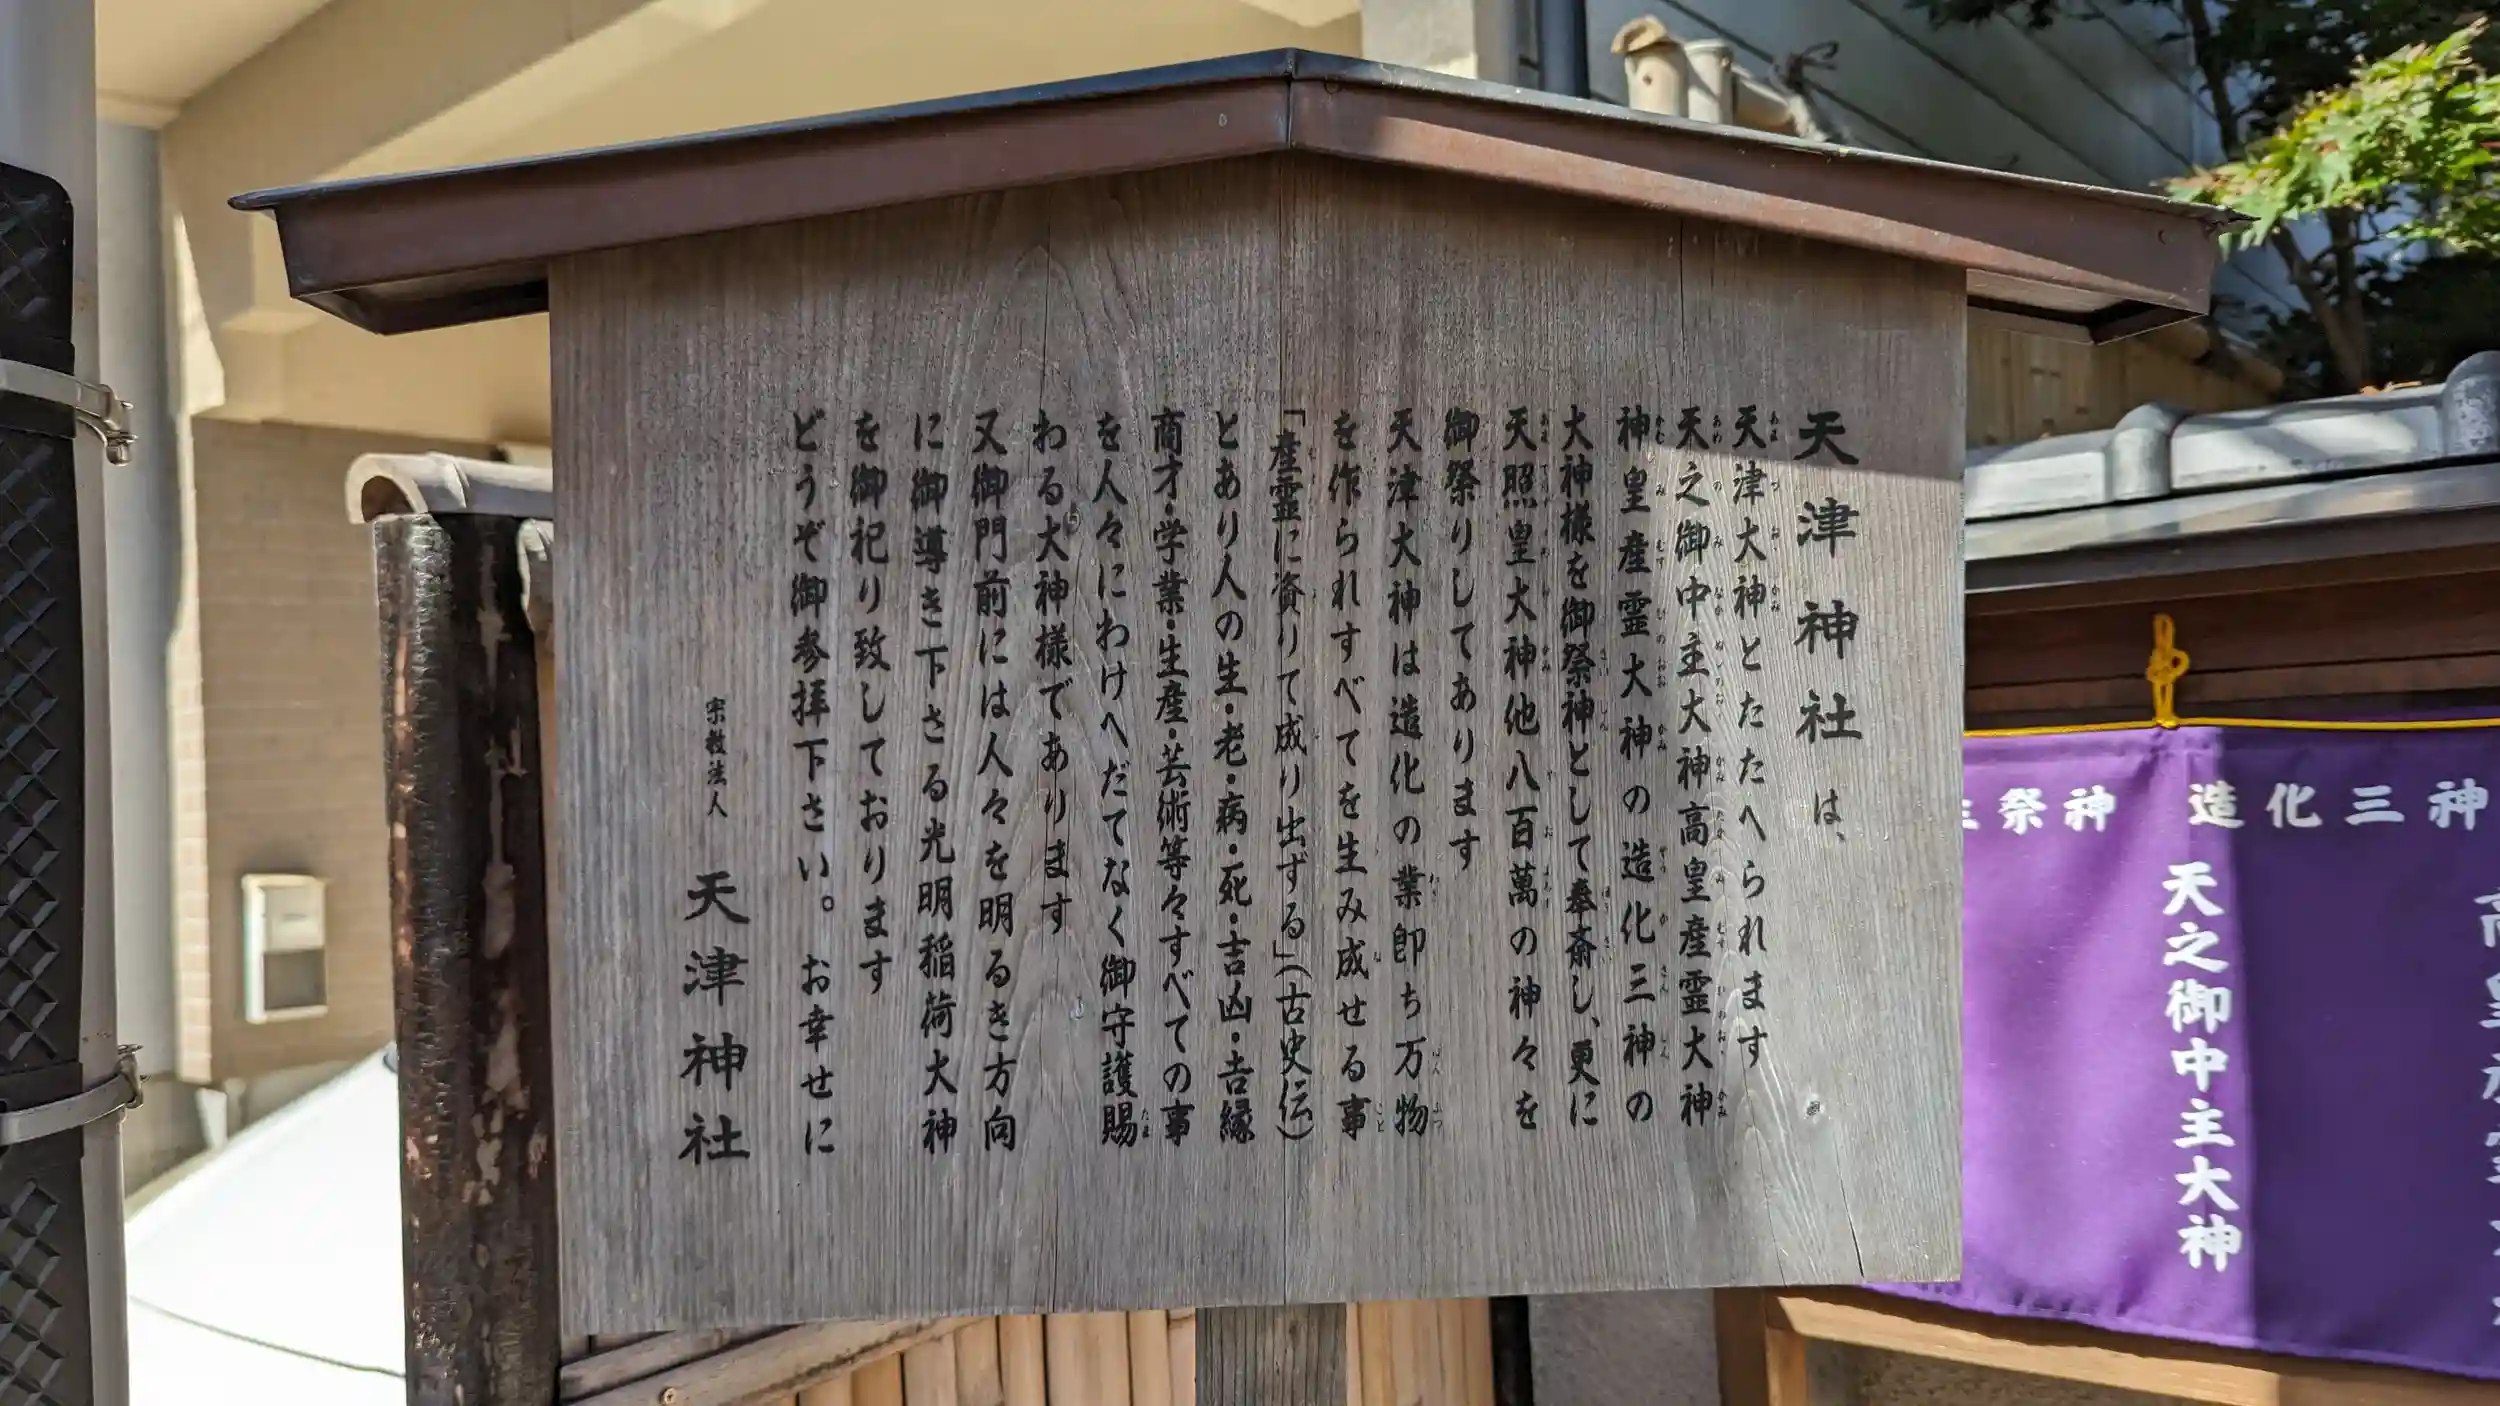 天津神社は、
天津大神とたたへられます
天之御中主大神高皇産霊大神
神皇産霊大神の造化三神の
大神様を御祭神として奉斎し、更に
天照皇大神他八百萬の神々を
御祭りしてあります
天津大神は造化の業即ち万物
を作られすべてを生み成せる事
「産霊に資りて成り出ずる」(古史伝)
とあり人の生・老・病・死・吉凶・吉縁
商才・学業・生産・芸術等々すべての事
を人々にわけへだてなく御守護賜
わる大神様であります
又御門前には人々を明るき方向
に御導き下さる光明稲荷大神
を御祀り致しております
どうぞ御参拝下さい。お幸せに
宗教法人 天津神社
祭神 造化三神
天之御中主大神